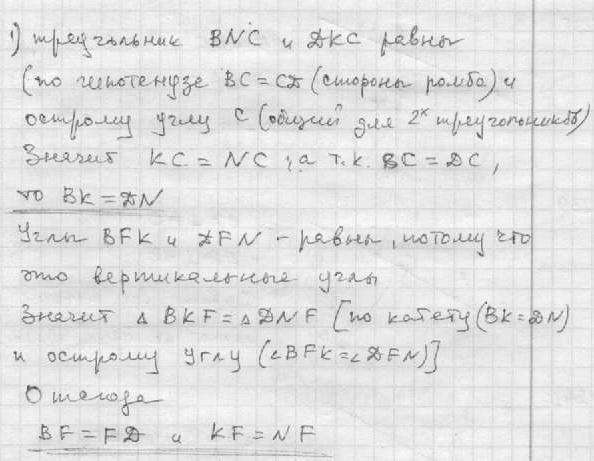 1) треугольник BNC и DKC равны
(по гипотенузе BC = CD (стороны ромба) и
острому углу C (общий для 2х треугольников)
Значит KC = NC, а т.к. BC = DC,
то BK = DN
Углы BFK и DFN - равны, потому что
это вертикальные углы
Значит △ BKF = △ DNF [по катету (BK = DN)
и острому углу (∠BFK = ∠DFN)]
Отсюда
BF = FD и KF = NF